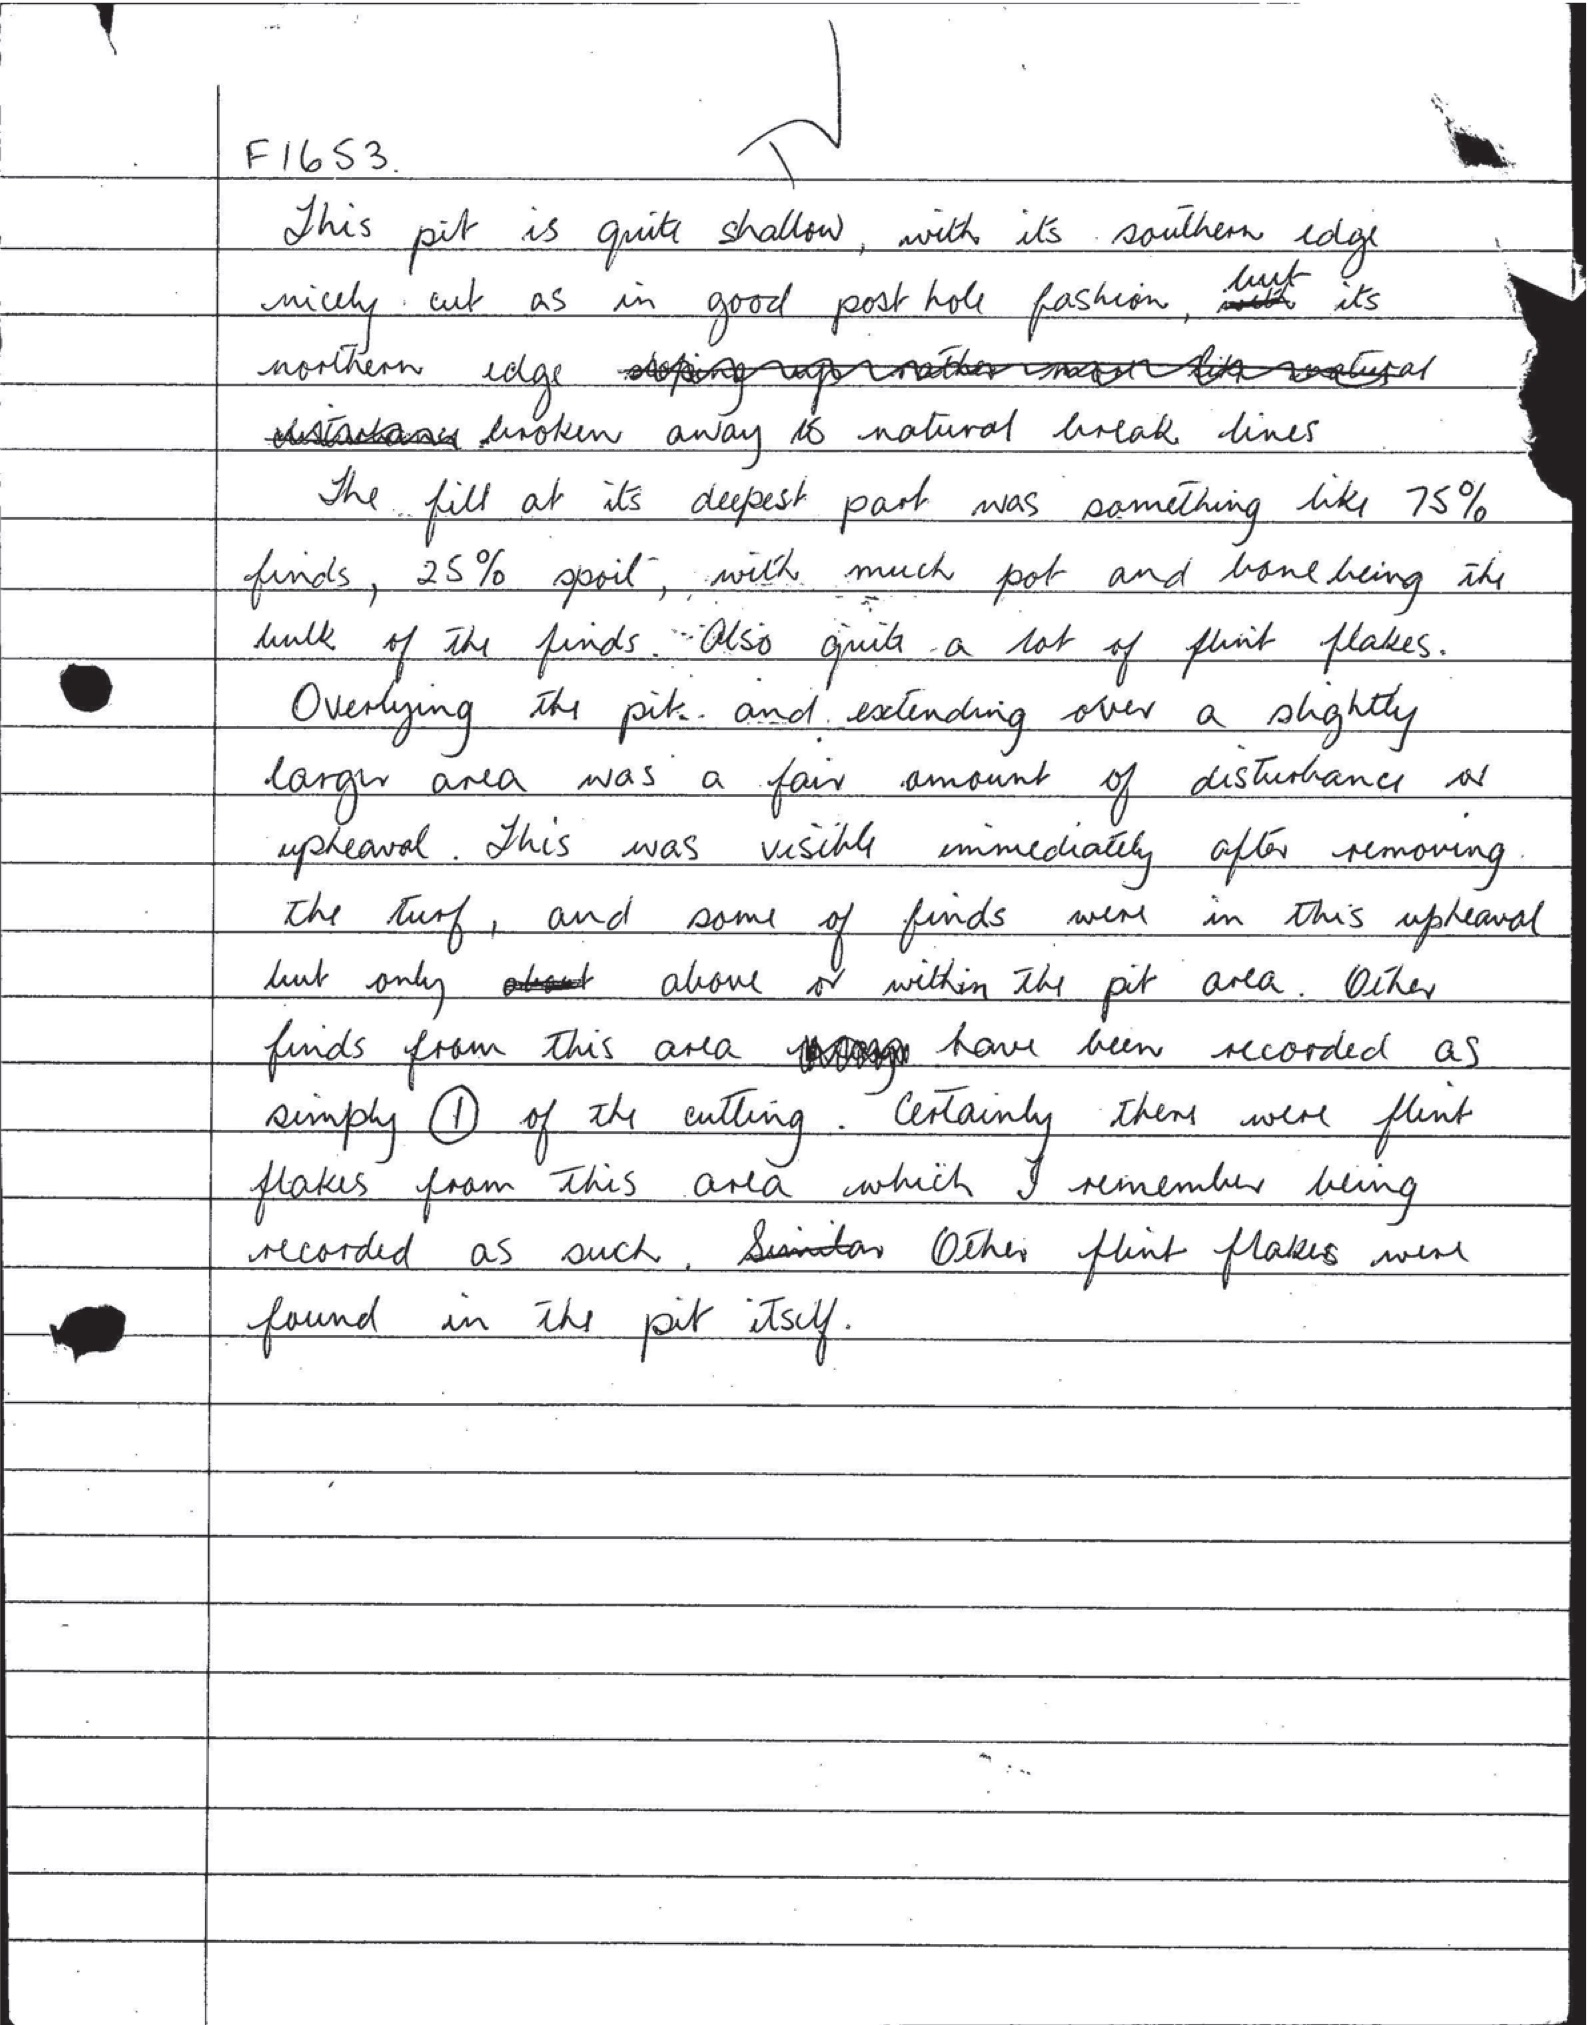 F1653.
This pit is quite shallow, with its southern edge
nicely cut as in good post hole fashion, with but its
northern edge sloping up rather more like natural
disturbance broken away to natural break lines
The fill at its deepest part was something like 75%
finds, 25% spoil, with much pot and bone being the
bulk of the finds. Also quite a lot of flint flakes.
Overlying the pit and extending over a slightly
larger area was a fair amount of disturbance or
upheaval. This was visible immediately after removing
the turf, and some of finds were in this upheaval
but only about above or within the pit area. Other
finds from this area have been recorded as
simply ① of the cutting. Certainly there were flint
flakes from this area which I remember being
recorded as such. Similar Other flint flakes were
found in the pit itself.